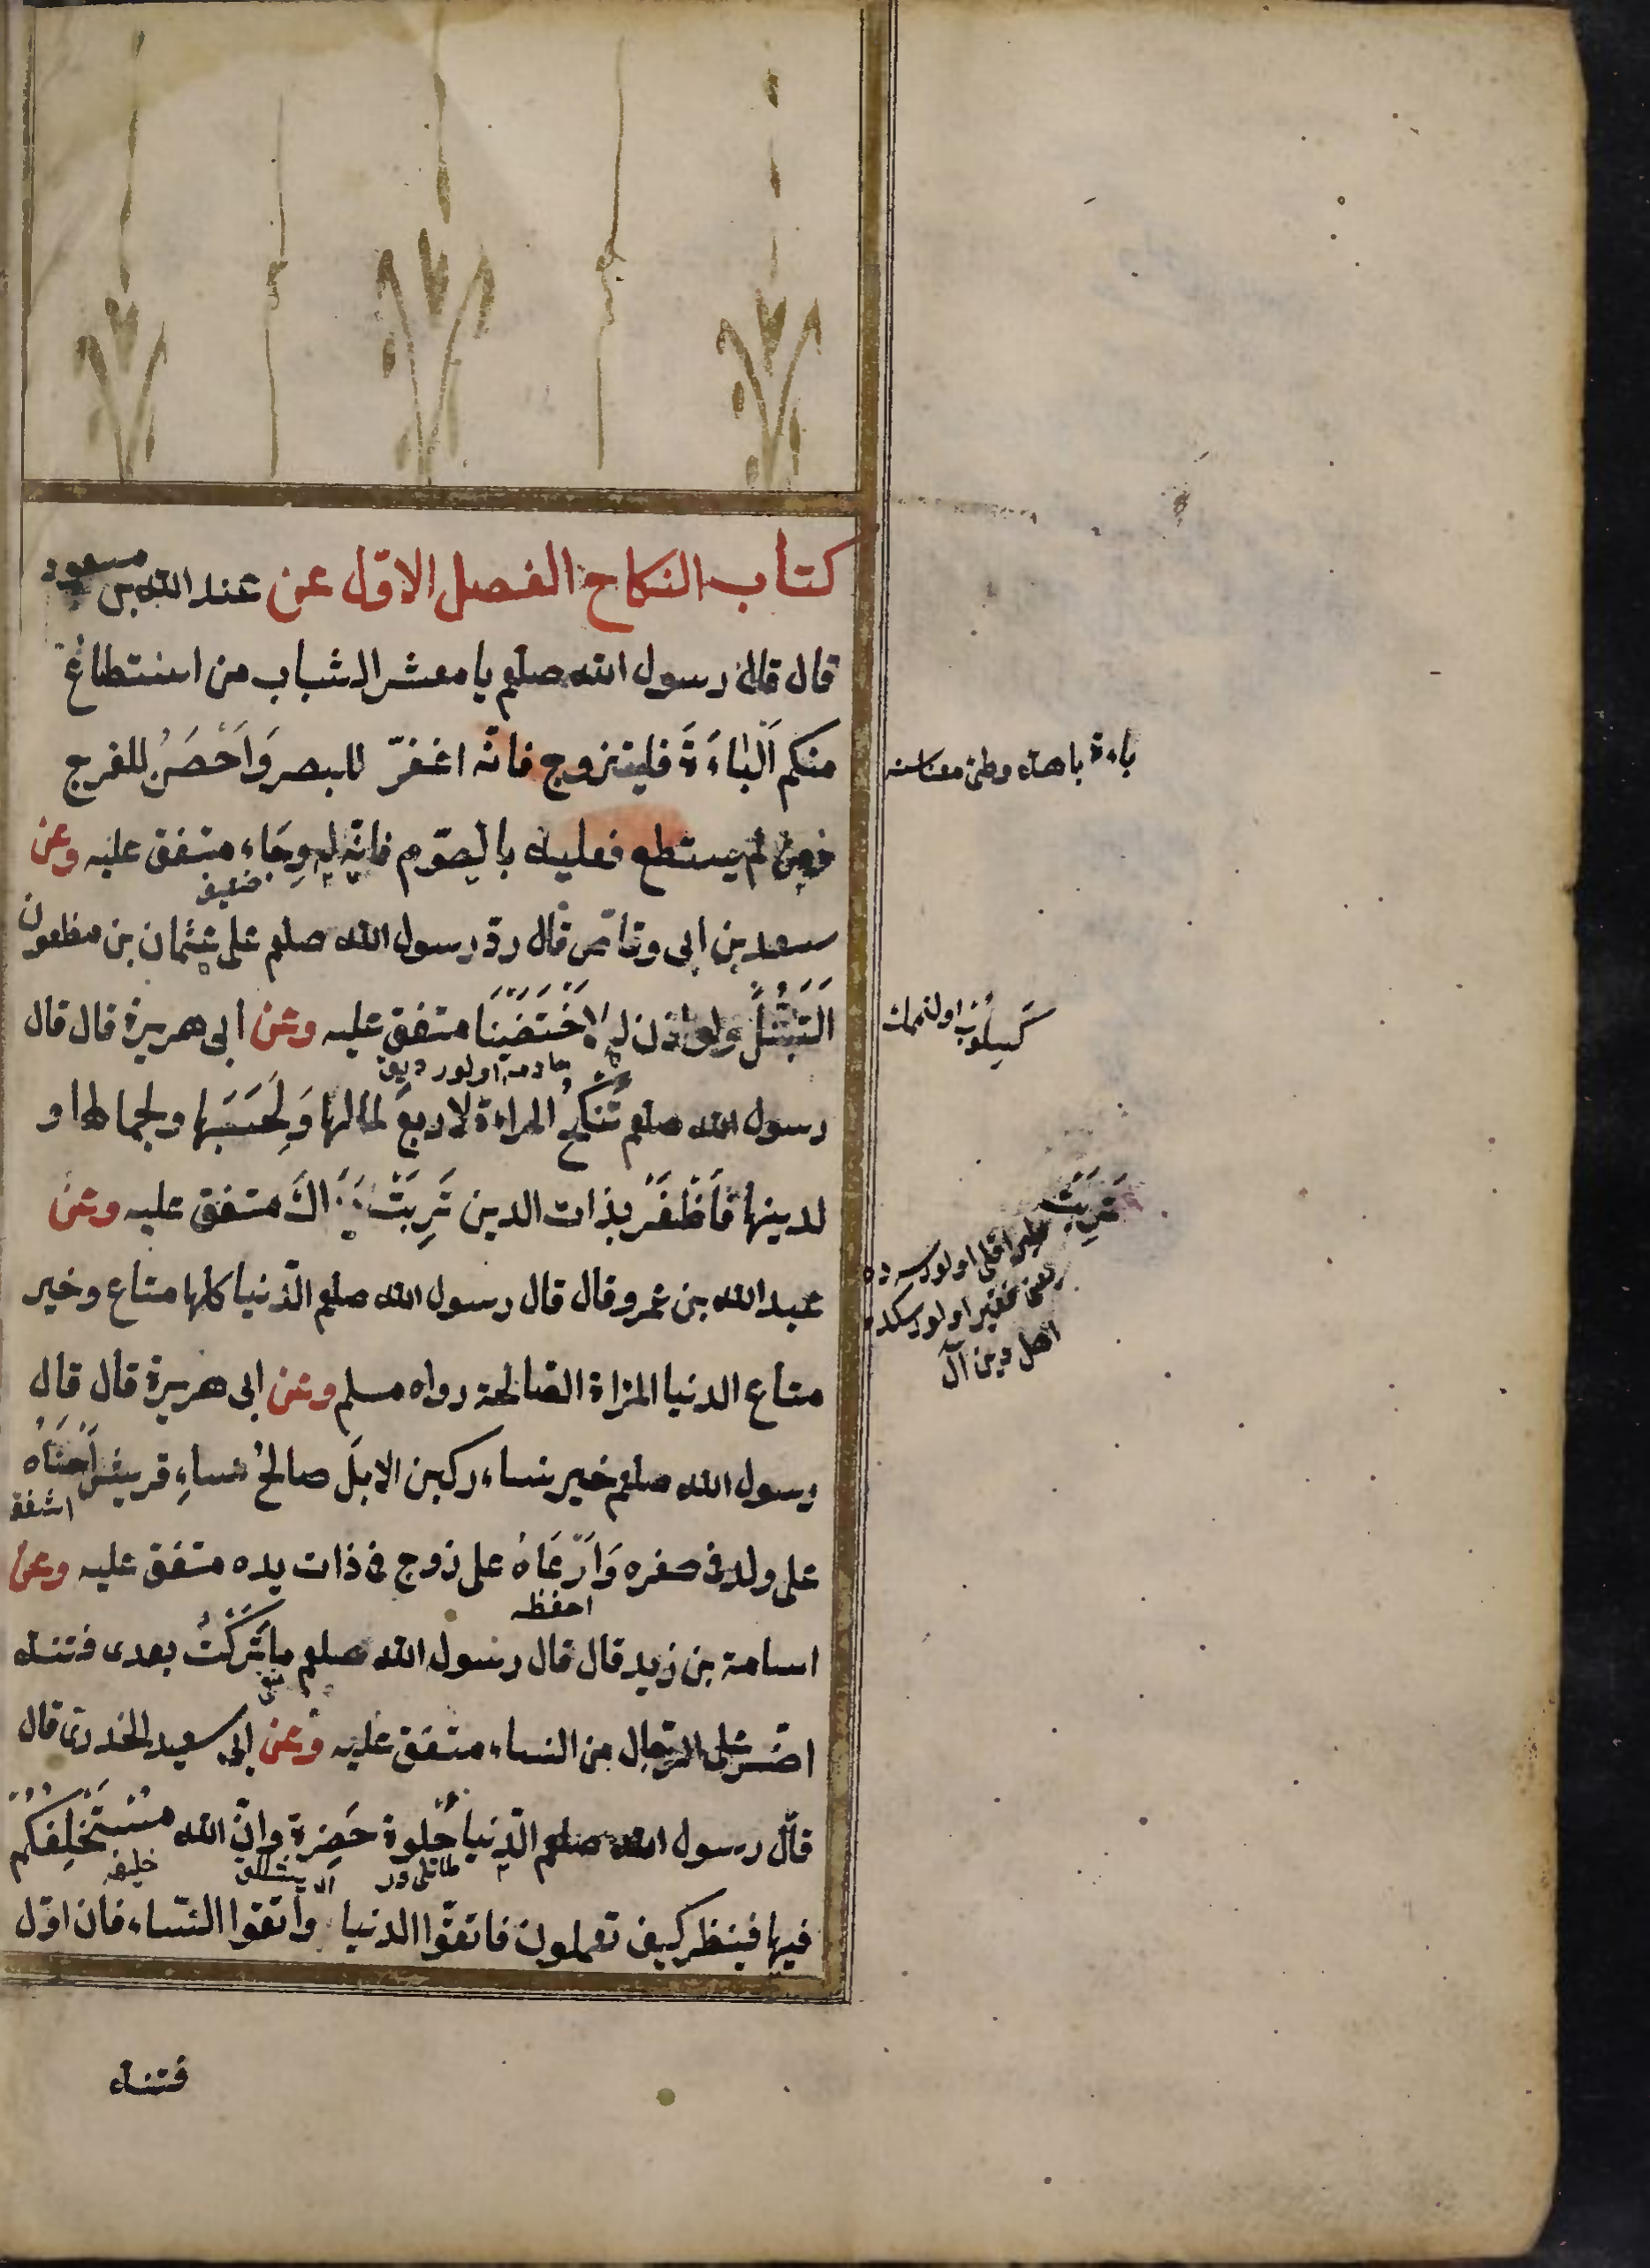 كتاب النكاح الفصل الاوّل عن عبد الله بن مسعود
قال قال رسول الله صلعم يا معشر الشباب من استطاع
منكم اَلْبَاءَةَ فليتزوج فانّه اغضّ للبصر وَاَحْصَنُ للفرج
ومن لم يستطع فعليه بالصّوم فانّه له وِجَاء متفق عليه وعن
ضعيف
سعد بن ابى وقاص قال ردّ رسول الله صلعم على عثمان بن مظعون
اَلتَّبَتُّلَ ولو اذن له لَاخْتَصَيْنَا متفق عليه وعن ابى هريرة قال قال
رسول الله صلعم تُنْكَحُ المراءة لاربع لمالها وَلِحَسَبِها ولجمالها و
لدينها فَاَظْفَرْ بذات الدين تَرِبَتْ يَدَاكَ متفق عليه وعن
عبد الله بن عمرو قال قال رسول الله صلعم الدّنيا كلها متاع وخير
متاع الدنيا المراة الصّالحة رواه مسلم وعن ابى هريرة قال قال
رسول الله صلعم خير نساء ركبن الابلَ صالحُ نساءِ قريش اَحْنَاهُ
اشفق
على ولد فى صغره وَاَرْعَاهُ على زوج فى ذات يده متفق عليه وعن
احفظ
اسامة بن زيد قال قال رسول الله صلعم ما تَرَكْتُ بعدى فتنة
اضرّ على الرّجال من النساء متفق عليه وعن ابى سعيد الخدرى قال
قال رسول الله صلعم الدّنيا حُلوة خَضِرة وانّ الله مُسْتَخْلِفُكُمْ
خليفه
فيها فينظر كيف تعملون فاتقوّا الدنيا واتقوا النّساء فان اوّل
فتنة
باءة باهة وطئ
تَرِبَتْ
يعنى فقير اولورسكده
اهل دين آل